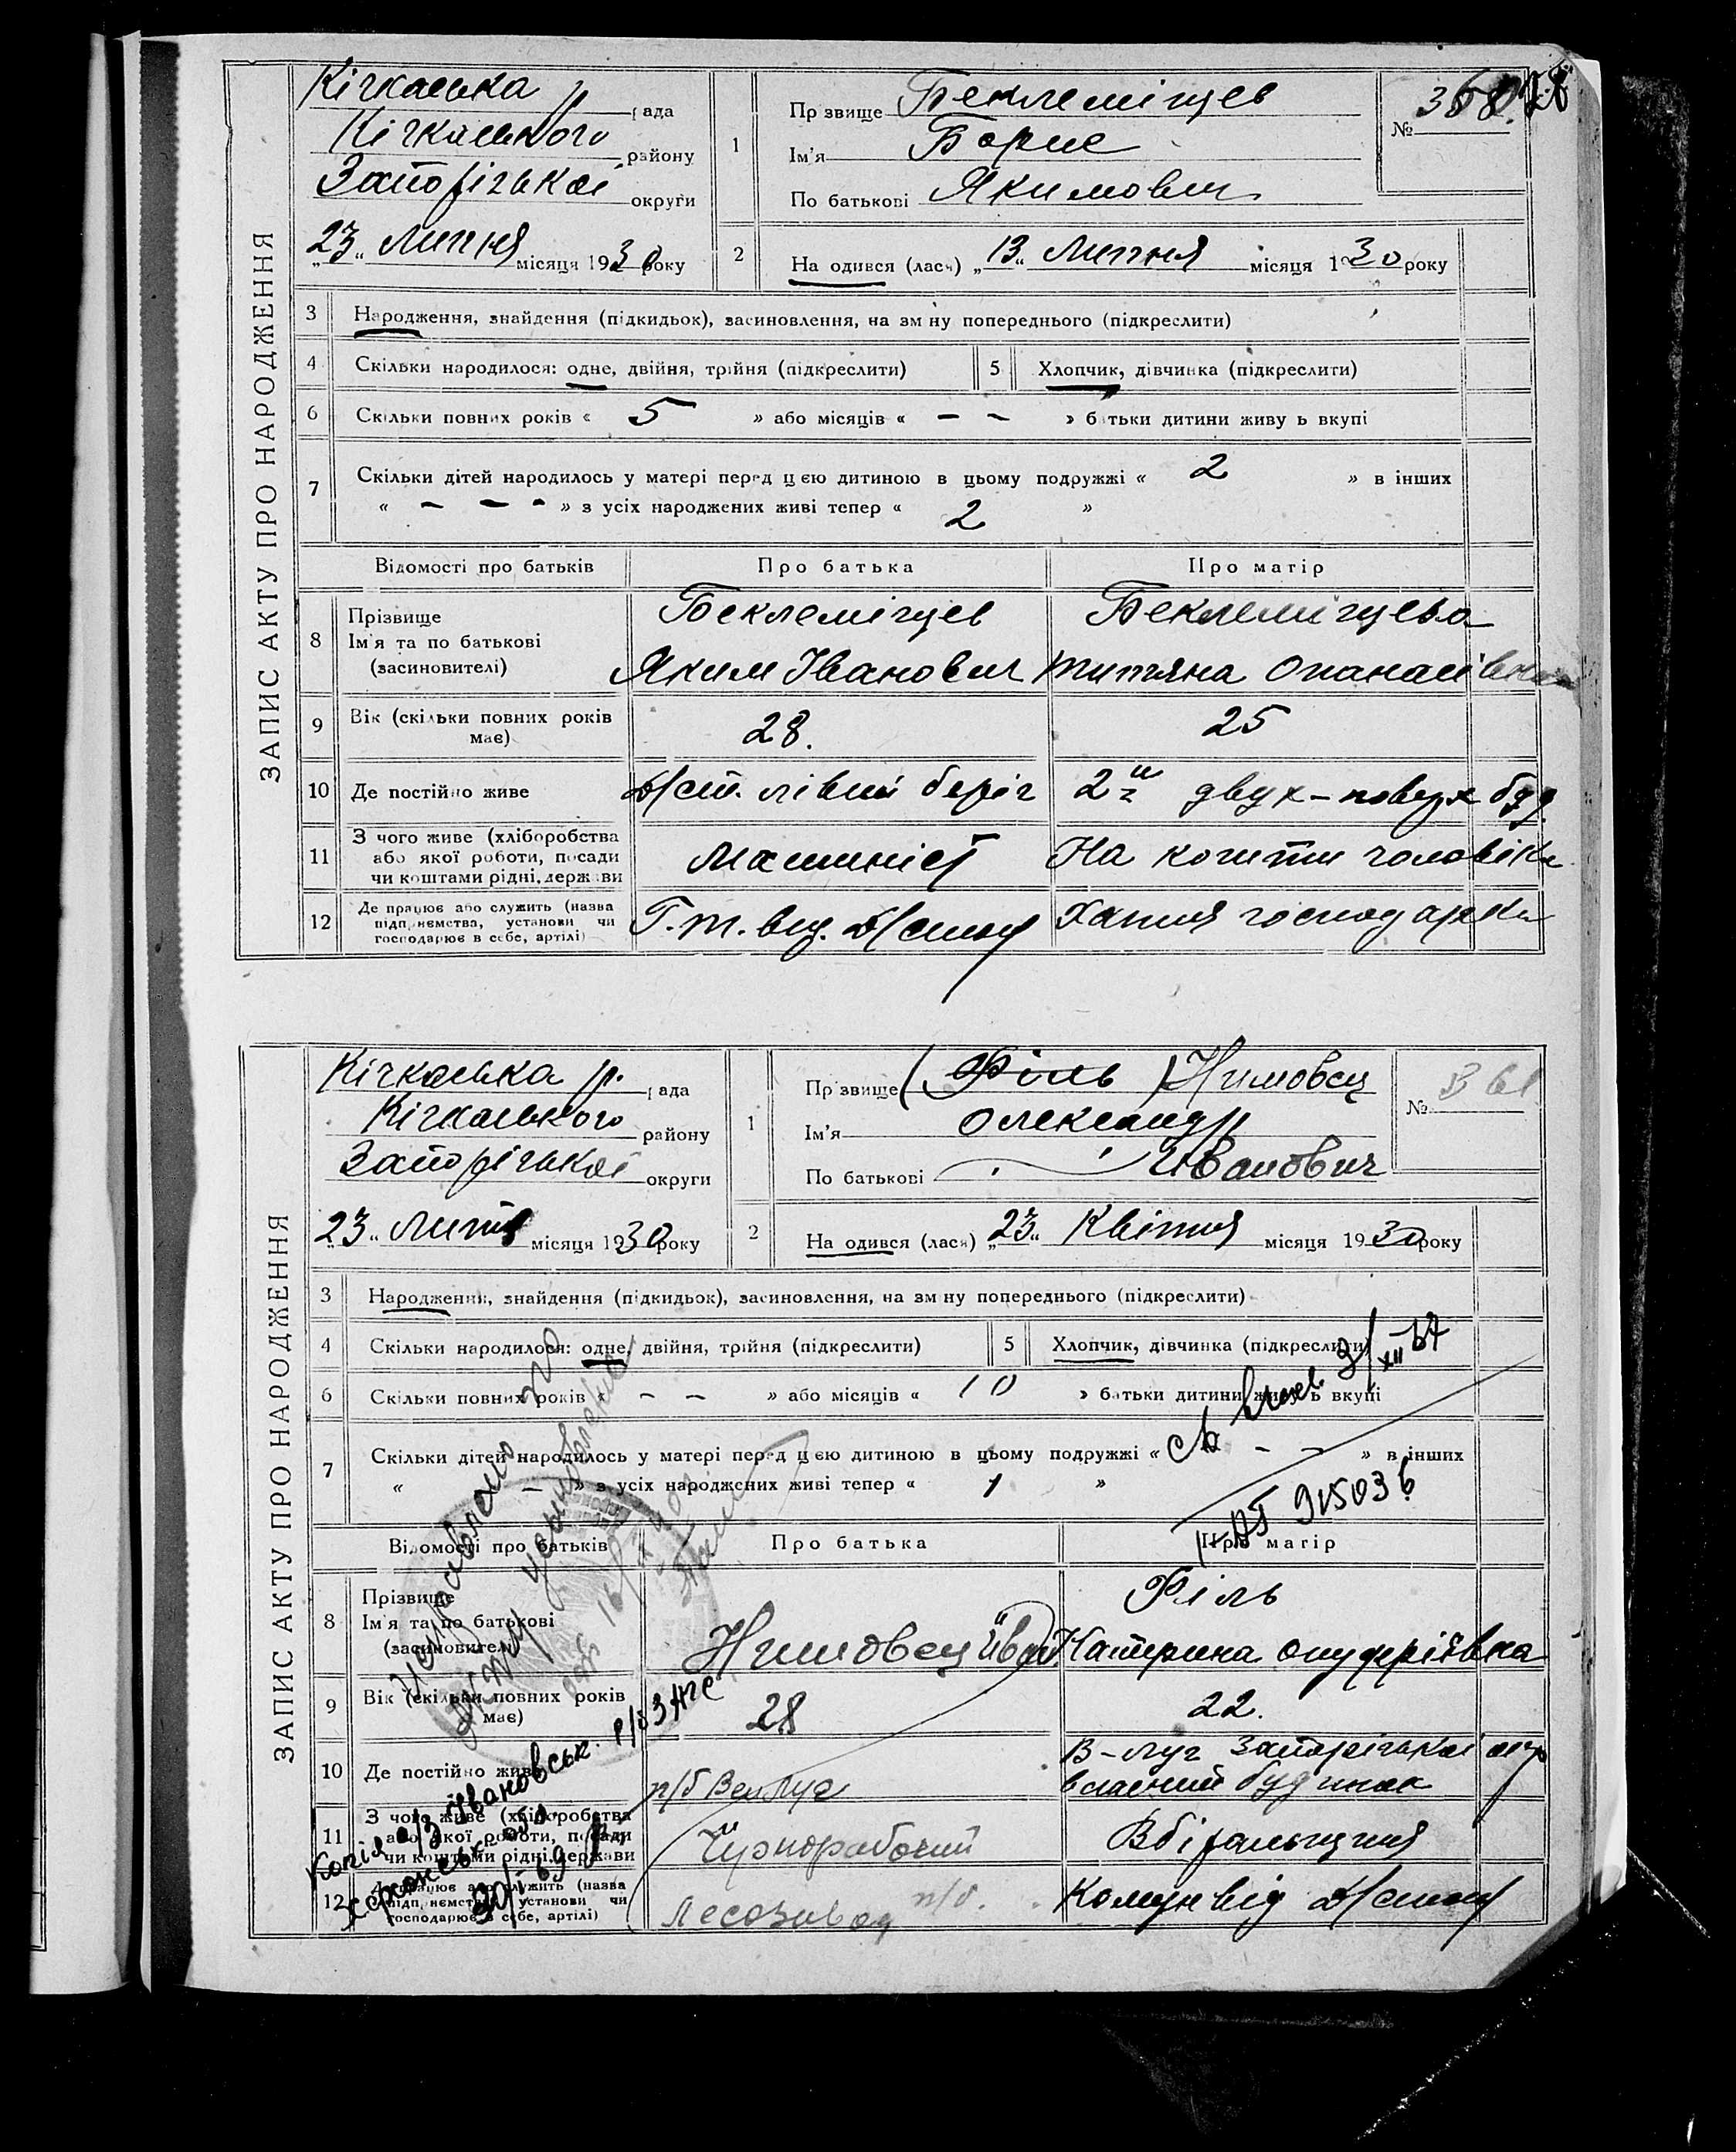 ЗАПИС АКТУ ПРО НАРОДЖЕННЯ
Кічкаська р. рада
Кічкаського району
Запорізької округи
„23“ Липня місяця 1930 року
1 Прізвище Беклеміщев
Ім'я Борис
По батькові Якимович
№ 360.
2 На одився (лась) „13“ Липня місяця 1930 року
3 Народження, знайдення (підкидьок), засиновлення, на зм ну попереднього (підкреслити)
4 Скільки народилося: одне, двійня, трійня (підкреслити)
5 Хлопчик, дівчинка (підкреслити)
6 Скільки повних років « 5 » або місяців « – – » батьки дитини живу ь вкупі
7 Скільки дітей народилось у матері перед цією дитиною в цьому подружжі « 2 » в інших
« – – – » з усіх народжених живі тепер « 2 »
Відомості про батьків Про батька Про матір
8 Прізвище
Ім'я та по батькові
(засиновителі)
Беклеміщев Беклеміщева
Яким Іванович Титяна Опанасівна
9 Вік (скільки повних років
має)
28. 25
10 Де постійно живе
Д/ст. лівий беріг 2й двух-поверх буд.
11 З чого живе (хліборобства
або якої роботи, посади
чи коштами рідні, держави
Машиніст На кошти чоловіка
12 Де працює або служить (назва
підприємства, установи чи
господарює в себе, артілі)
Г.т. вид. Хатня господарка
ЗАПИС АКТУ ПРО НАРОДЖЕННЯ
Кічкаська р. рада
Кічкаського району
Запорізької округи
„23“ Липня місяця 1930 року
1 Прізвище (Філь) Нимовец
Ім'я Олександр
По батькові Иванович
№ 361
2 На одився (лася) „23“ Квітня місяця 1930 року
3 Народження, знайдення (підкидьок), засиновлення, на зм ну попереднього (підкреслити)
4 Скільки народилося: одне, двійня, трійня (підкреслити)
5 Хлопчик, дівчинка (підкреслити)
3/XII-57
6 Скільки повних років « – – » або місяців « 10 » батьки дитини живуть вкупі
7 Скільки дітей народилось у матері перед цією дитиною в цьому подружжі « – – » в інших
« – » з усіх народжених живі тепер « 1 »
915036
Відомості про батьків Про батька Про матір
8 Прізвище
Ім'я та по батькові
(засиновителі)
Філь
Нимовец Іван Катерина Онуфріївна
9 Вік (скільки повних років
має)
28 22.
10 Де постійно живе
В-луг Запорізької окр
р/б Вел Луг власний будинок
11 З чого живе (хліборобства
або якої роботи, посади
чи коштами рідні, держави
Чорнорабочий Вбіральщиця
12 Де працює або служить (назва
підприємства, установи чи
господарює в себе, артілі)
Лесозавод Комун від
Исправлено
акту усыновления
Копія Івановськ. р/б ЗАГС
Херсонськ. обл.
30/I-69